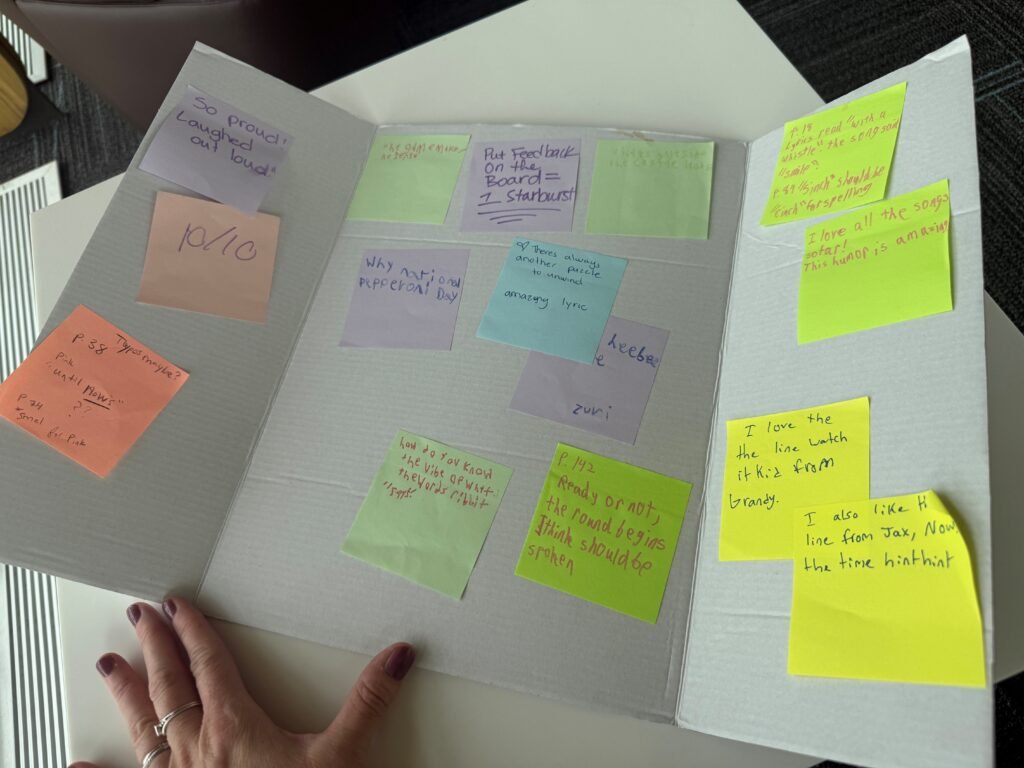 So proud!
Laughed
out loud!
10/10
P 38 Typos maybe?
Pink
"until Now"
??
P. 74
Put Feedback
On the
Board =
1 Starburst
Why national
pepperoni Day
Theres always
another puzzle
to unwind
amazing lyric
zuri
how do you know
the vibe of what
the words ribbit
P. 142
Ready or not,
the round begins
I think should be
spoken
P. 18
Lyrics read "with a
whistle" the song said
"smile"?
"cinch" for spelling
I love all the songs
sofar!
This humor is amazing
I love the
the line watch
it Kid from
Grandy.
I also like
line from Jax, Now
the time hinthint